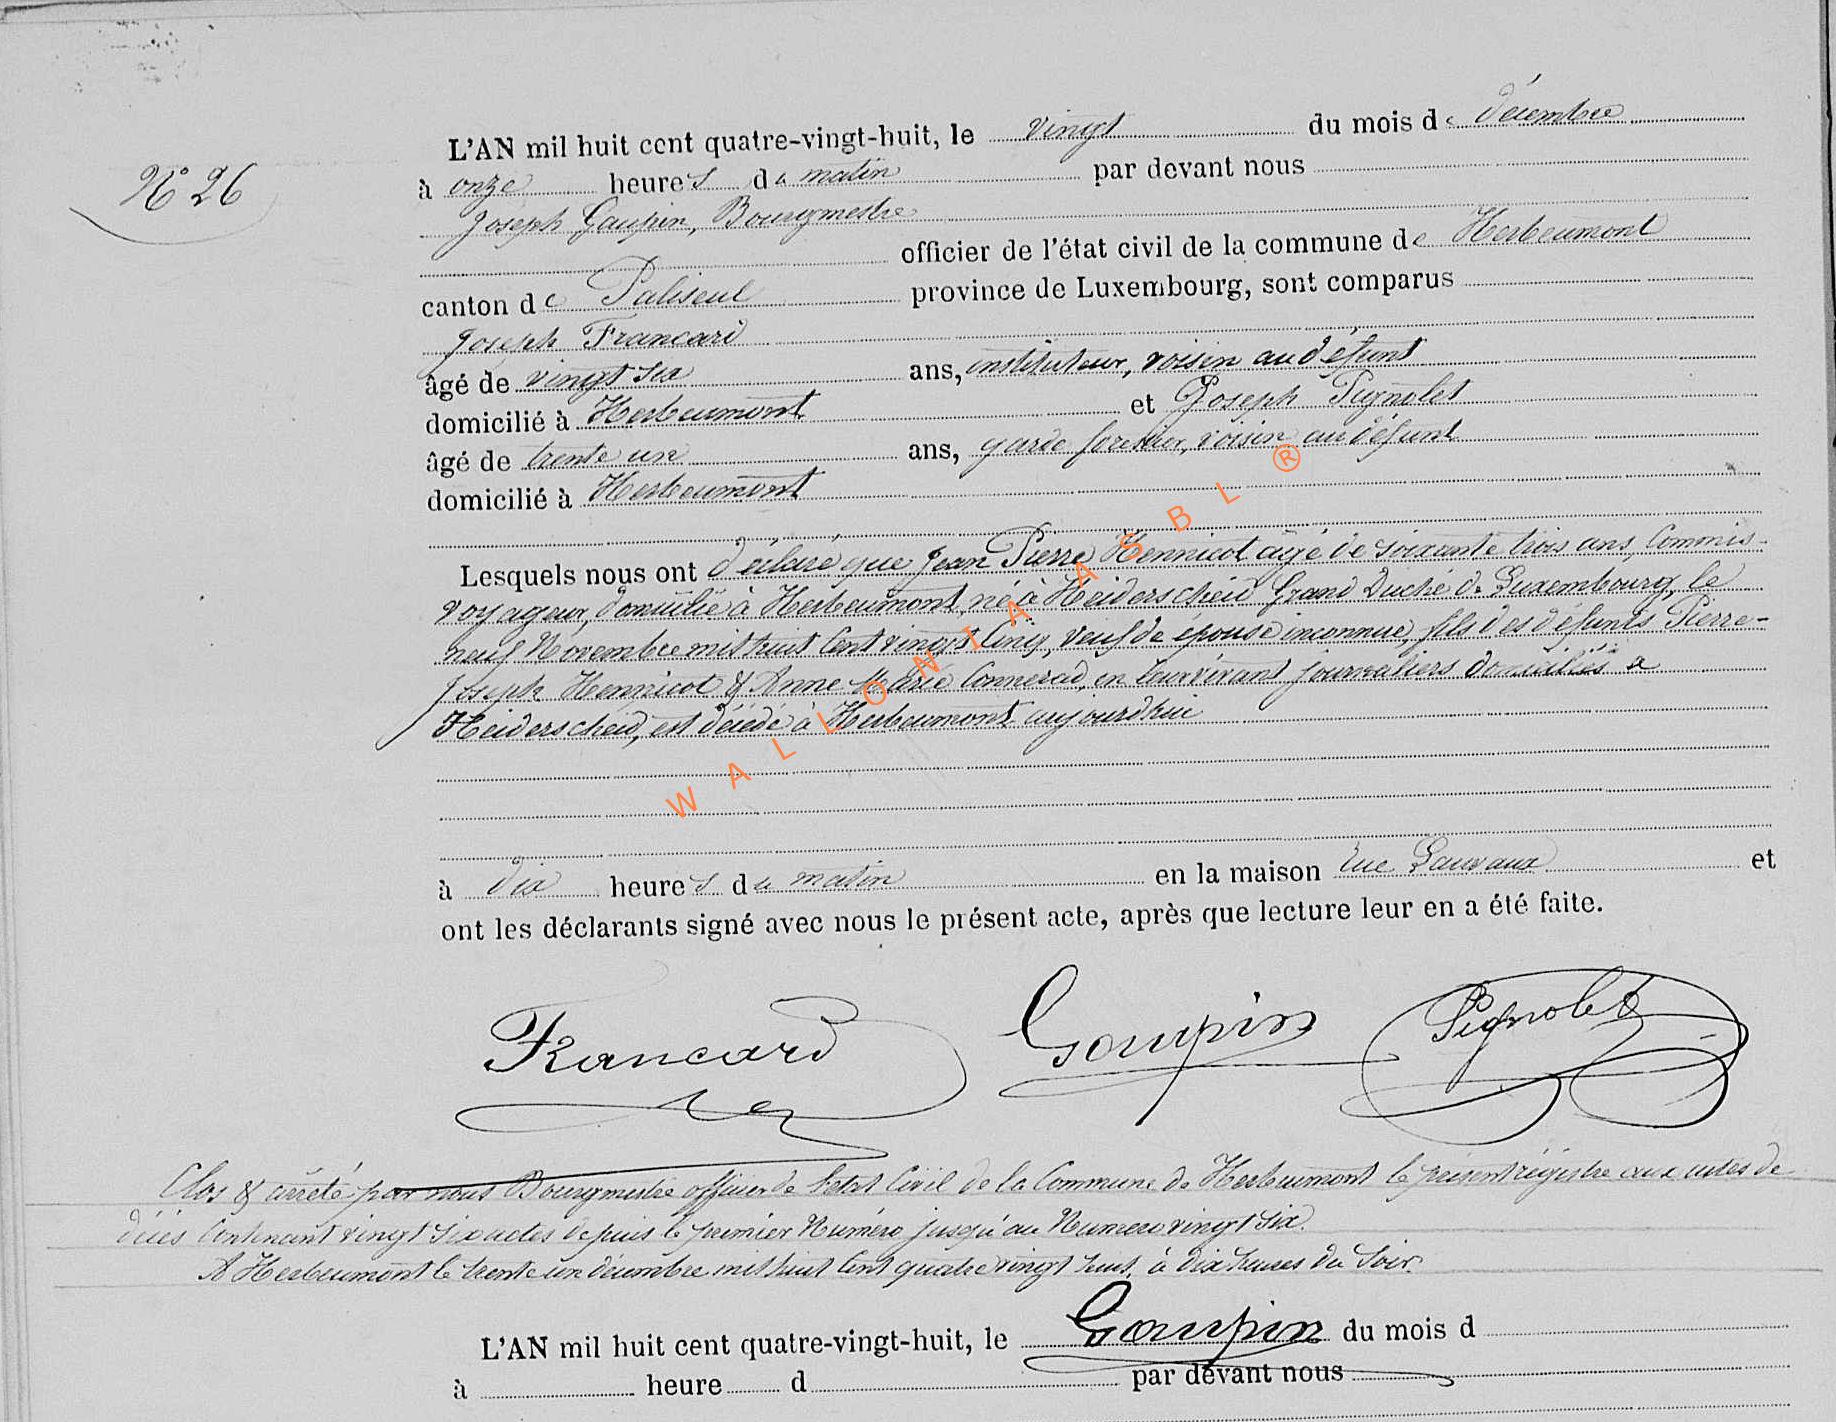 N° 26
L'AN mil huit cent quatre-vingt-huit, le vingt du mois de décembre
à onze heures du matin par devant nous
Joseph Goupin, Bourgmestre
officier de l'état civil de la commune de Herbeumont
canton de Paliseul province de Luxembourg, sont comparus
Joseph Francard
âgé de vingt six ans, instituteur, voisin au défunt
domicilié à Herbeumont et Joseph Pignolet
âgé de trente un ans, garde forestier, voisin au défunt
domicilié à Herbeumont
Lesquels nous ont déclaré que Jean Pierre Hennicot âgé de soixante trois ans, Commis-
voyageur, domicilié à Herbeumont, né à Heiderscheid Grand Duché de Luxembourg, le
neuf Novembre mil huit Cent vingt Cinq, veuf de épouse inconnue, fils des défunts Pierre-
Joseph Hennicot & Anne Marie Connerad, en leur vivant journaliers domiciliés à
Heiderscheid, est décédé à Herbeumont aujourd'hui
à dix heures du matin en la maison rue Lauvaux et
ont les déclarants signé avec nous le présent acte, après que lecture leur en a été faite.
Francard Goupin Pignolet
Clos & arrêté par nous Bourgmestre officier de l'etat Civil de la Commune de Herbeumont le présent régistre aux actes de
décès Contenant vingt six actes depuis le premier Numéro jusqu'au Numero vingt six.
A Herbeumont le trente un décembre mil huit Cent quatre vingt huit, à dix heures du Soir.
Goupin
L'AN mil huit cent quatre-vingt-huit, le du mois d
à heure d par devant nous
WALLONIA ASBL ®